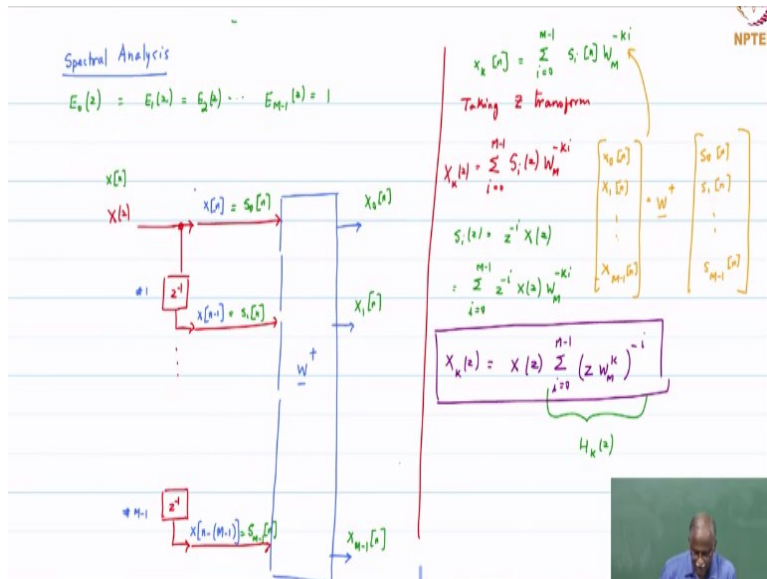 NPTE
Spectral Analysis
E₀(z) = E₁(z) = E₂(z) ... E_{M-1}(z) = 1
x[n]
X(z)
x[n] = s₀[n]
x₀[n]
#1
z⁻¹
x[n-1] = s₁[n]
x₁[n]
W⁺
#M-1
z⁻¹
x[n-(M-1)] = s_{M-1}[n]
x_{M-1}[n]
x_k[n] = ∑_{i=0}^{M-1} s_i[n] W_M^{-ki}
Taking Z transform
X_k(z) = ∑_{i=0}^{M-1} S_i(z) W_M^{-ki}
[x₀[n] x₁[n] ⋮ x_{M-1}[n]] = W⁺ [s₀[n] s₁[n] ⋮ s_{M-1}[n]]
S_i(z) = z^{-i} X(z)
= ∑_{i=0}^{M-1} z^{-i} X(z) W_M^{-ki}
X_k(z) = X(z) ∑_{i=0}^{M-1} (z W_M^k)^{-i}
H_k(z)